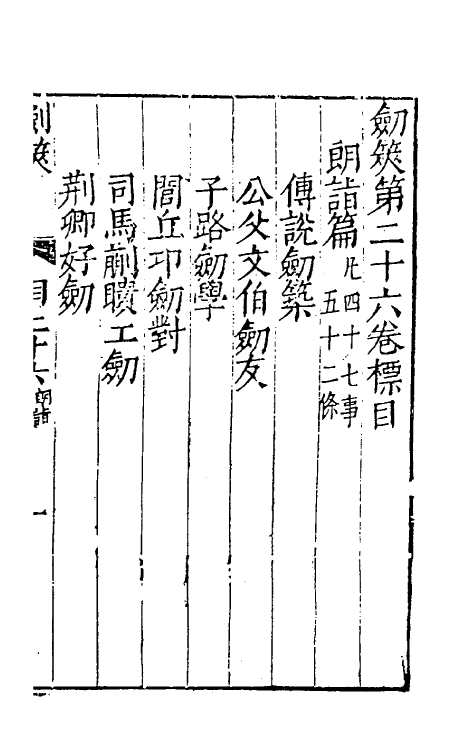 劒筴第二十六卷標目
朗詣篇凡四十七事五十二條
傅說劒築
公父文伯劒友
子路劒學
閭丘邛劒對
司馬蒯聵工劒
荆卿好劒
劒筴 目二十六 朗詣 一